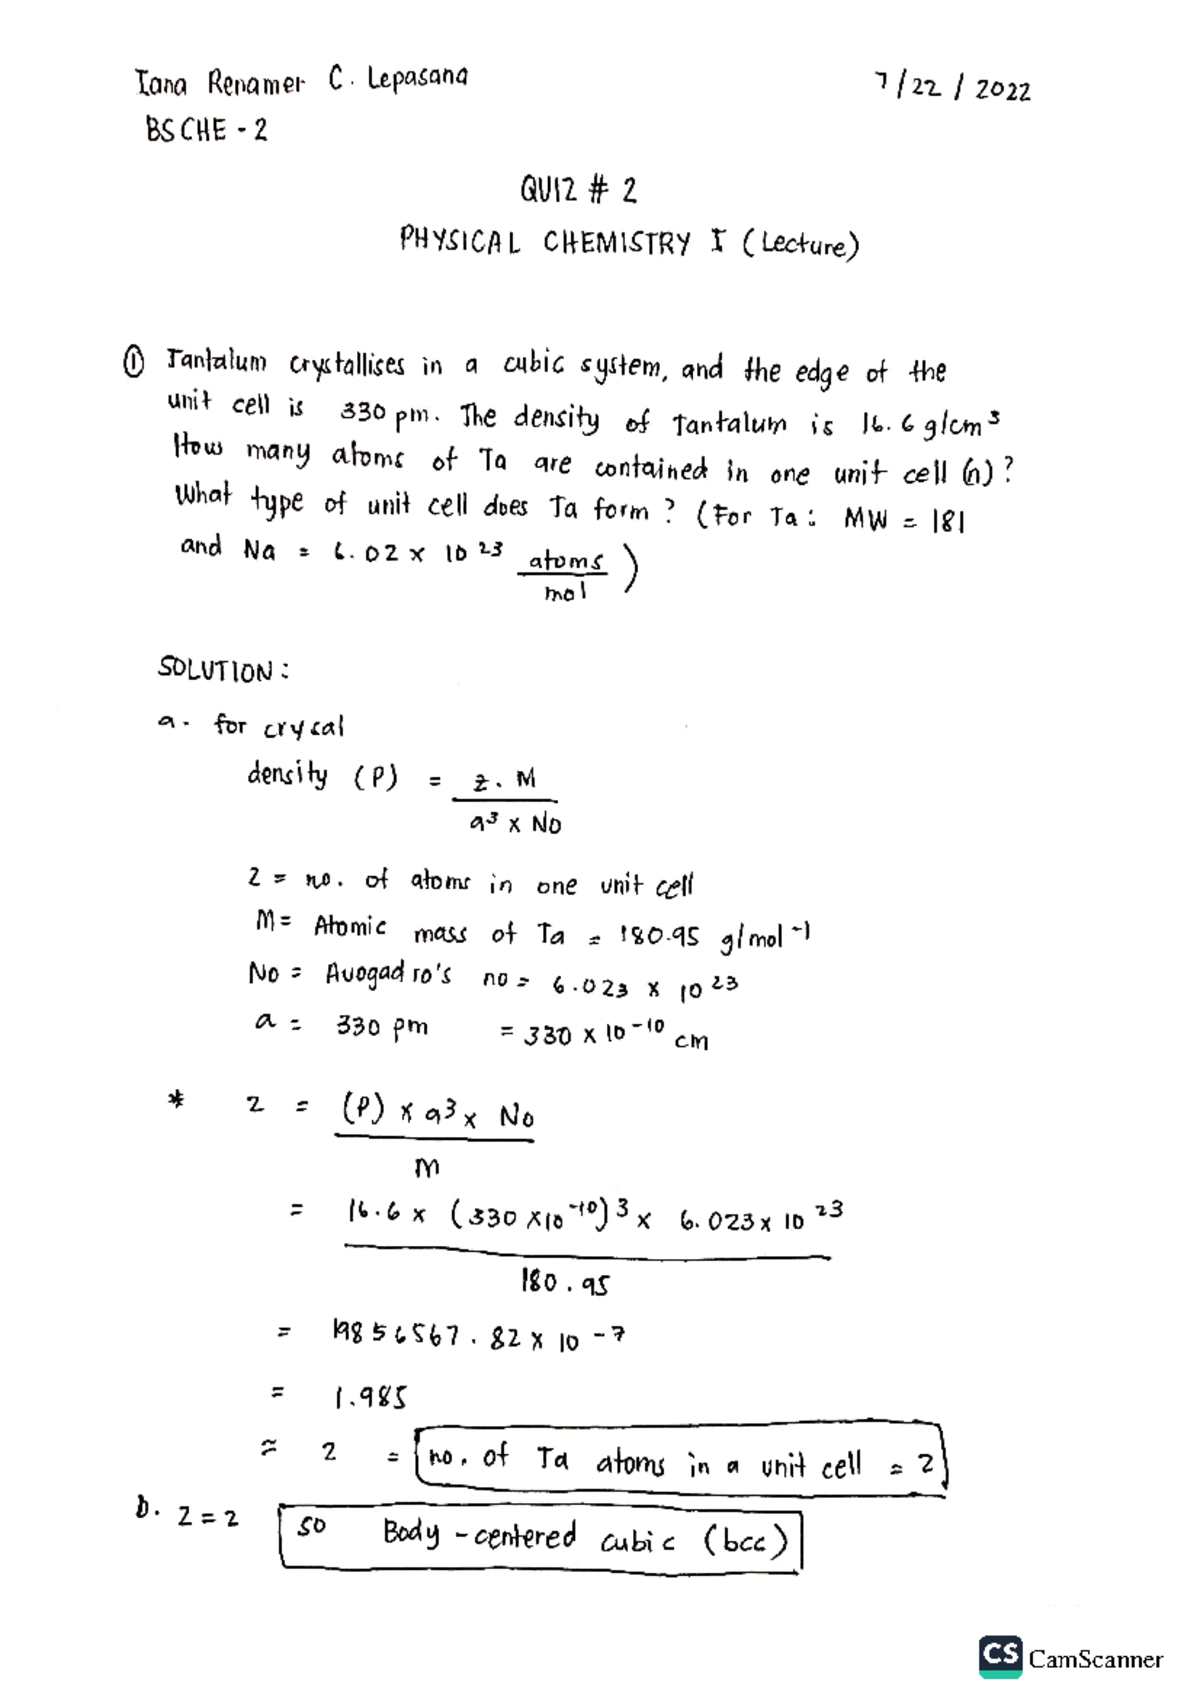 Iana Renamer C. Lepasana 7/22/2022
BSCHE - 2
QUIZ # 2
PHYSICAL CHEMISTRY I (Lecture)
① Tantalum crystallises in a cubic system, and the edge of the
unit cell is 330 pm. The density of Tantalum is 16.6 g/cm³
How many atoms of Ta are contained in one unit cell (n)?
What type of unit cell does Ta form? (For Ta: MW = 181
and Na = 6.02 x 10²³ atoms/mol)
SOLUTION:
a. for crysal
density (P) = z. M
a³ x No
Z = no. of atoms in one unit cell
M = Atomic mass of Ta = 180.95 g/mol⁻¹
No = Avogadro's no = 6.023 x 10²³
a = 330 pm = 330 x 10⁻¹⁰ cm
* Z = (P) x a³ x No
M
= 16.6 x (330 x10⁻¹⁰)³ x 6.023 x 10²³
180.95
= 19856567.82 x 10⁻⁷
= 1.985
≈ 2 = no. of Ta atoms in a unit cell = 2
b. Z = 2 so Body - centered cubic (bcc)
CS CamScanner